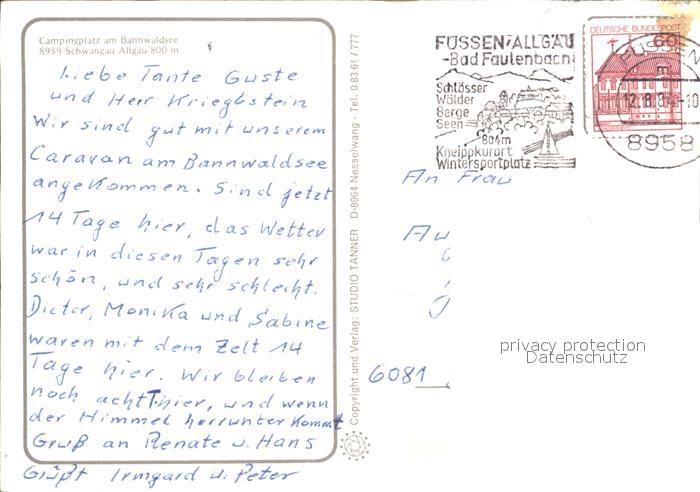 Campingplatz am Bannwaldsee
8959 Schwangau Allgäu 800 m
Liebe Tante Guste
und Herr Kriegbstein
Wir sind gut mit unserem
Caravan am Bannwaldsee
angekommen. Sind jetzt
14 Tage hier, das Wetter
war in diesen Tagen sehr
schön, und sehr schlecht.
Dieter, Monika und Sabine
waren mit dem Zelt 14
Tage hier. Wir bleiben
noch acht T hier, und wenn
der Himmel herrunter kommt
Gruß an Renate u. Hans
Grüßt Irmgard u. Peter
Copyright und Verlag: STUDIO TANNER D-8964 Nesselwang · Tel. 0 83 61 / 777
FÜSSEN/ALLGÄU
-Bad Faulenbach
Schlösser
Wälder
Berge
Seen
804m
Kneippkurort
Wintersportplatz
DEUTSCHE BUNDESPOST
60
FÜSSEN
12.8.84-10
8958
An Frau
Au
6081
privacy protection
Datenschutz